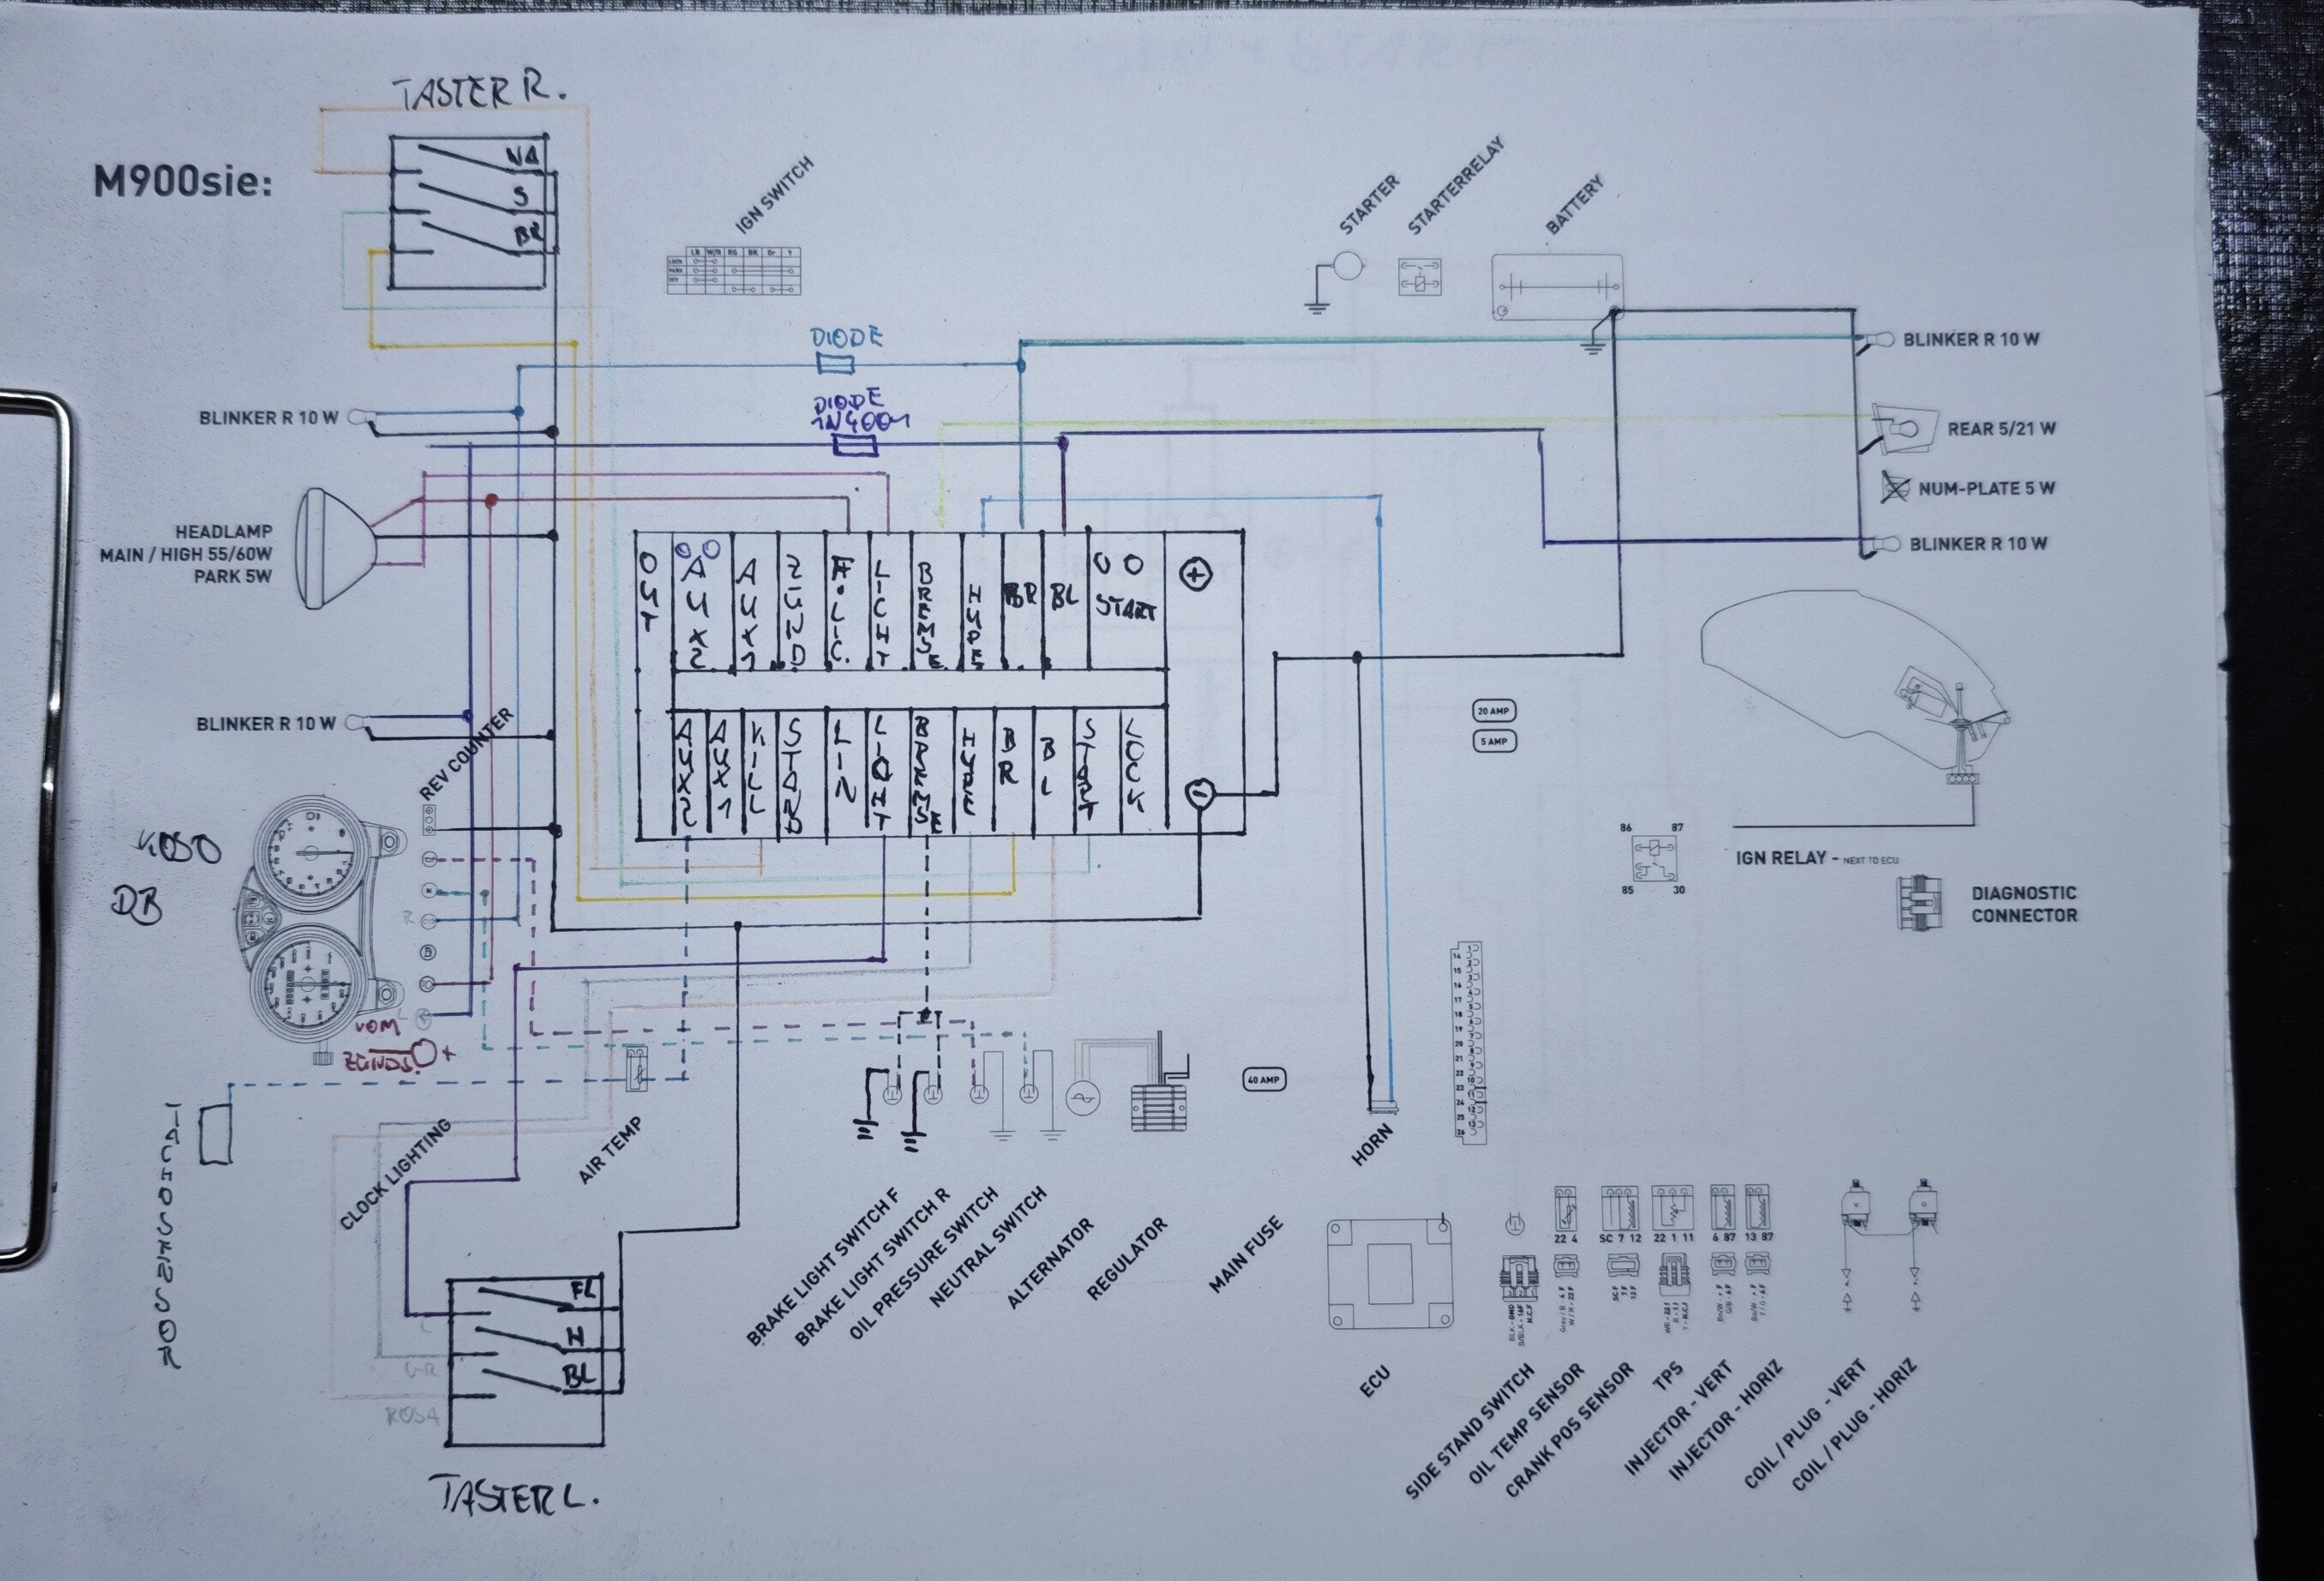 TASTER R.
M900sie:
NA
S
BR
IGN SWITCH
LB W/R RG BK Or Y
LOCK
PARK
OFF
STARTER
STARTERRELAY
BATTERY
DIODE
DIODE
1N4001
BLINKER R 10 W
BLINKER R 10 W
REAR 5/21 W
NUM-PLATE 5 W
BLINKER R 10 W
HEADLAMP
MAIN / HIGH 55/60W
PARK 5W
OUT
AUX2
AUX1
ZÜND
F.LIC.
LICHT
BREMSE
HUPE
BR
BL
START
+
BLINKER R 10 W
REV COUNTER
AUX2
AUX1
KILL
STAND
LIN
LIGHT
BREMSE
HUPE
BR
BL
START
LOCK
-
20 AMP
5 AMP
KOSO
DB
R
L
VOM
ZÜNDS. +
86 87
85 30
IGN RELAY - NEXT TO ECU
DIAGNOSTIC
CONNECTOR
14
15
16
17
18
19
20
21
22
23
24
25
26
40 AMP
CLOCK LIGHTING
AIR TEMP
BRAKE LIGHT SWITCH F
BRAKE LIGHT SWITCH R
OIL PRESSURE SWITCH
NEUTRAL SWITCH
ALTERNATOR
REGULATOR
MAIN FUSE
HORN
22 4
SC 7 12
22 1 11
6 87
13 87
ECU
SIDE STAND SWITCH
OIL TEMP SENSOR
CRANK POS SENSOR
TPS
INJECTOR - VERT
INJECTOR - HORIZ
COIL / PLUG - VERT
COIL / PLUG - HORIZ
FL
H
BL
GR
ROSA
TASTER L.